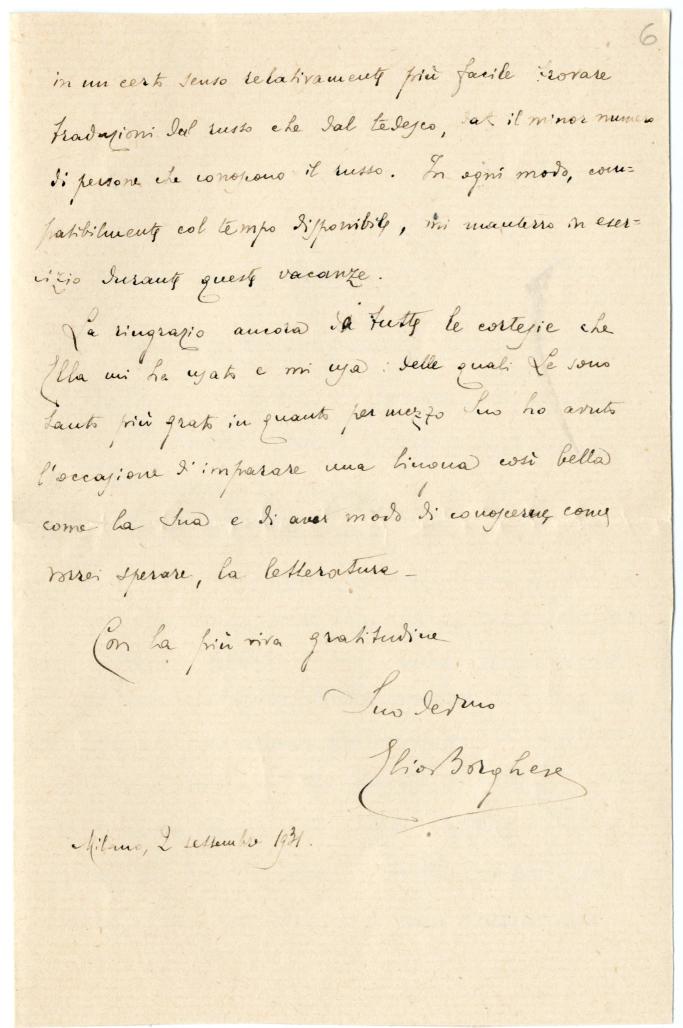 6
in un certo senso relativamente più facile trovare
traduzioni dal russo che dal tedesco, dat il minor numero
di persone che conoscono il russo. In ogni modo, com=
patibilmente col tempo disponibile, mi manterrò in eser=
cizio durante queste vacanze.
La ringrazio ancora di tutte le cortesie che
Ella mi ha usato e mi usa: delle quali Le sono
tanto più grato in quanto per mezzo Suo ho avuto
l'occasione d'imparare una lingua così bella
come la Sua e di aver modo di conoscerne, come
vorrei sperare, la letteratura_
Con la più viva gratitudine
Suo devmo
Elio Borghese
Milano, 2 settembre 1931.